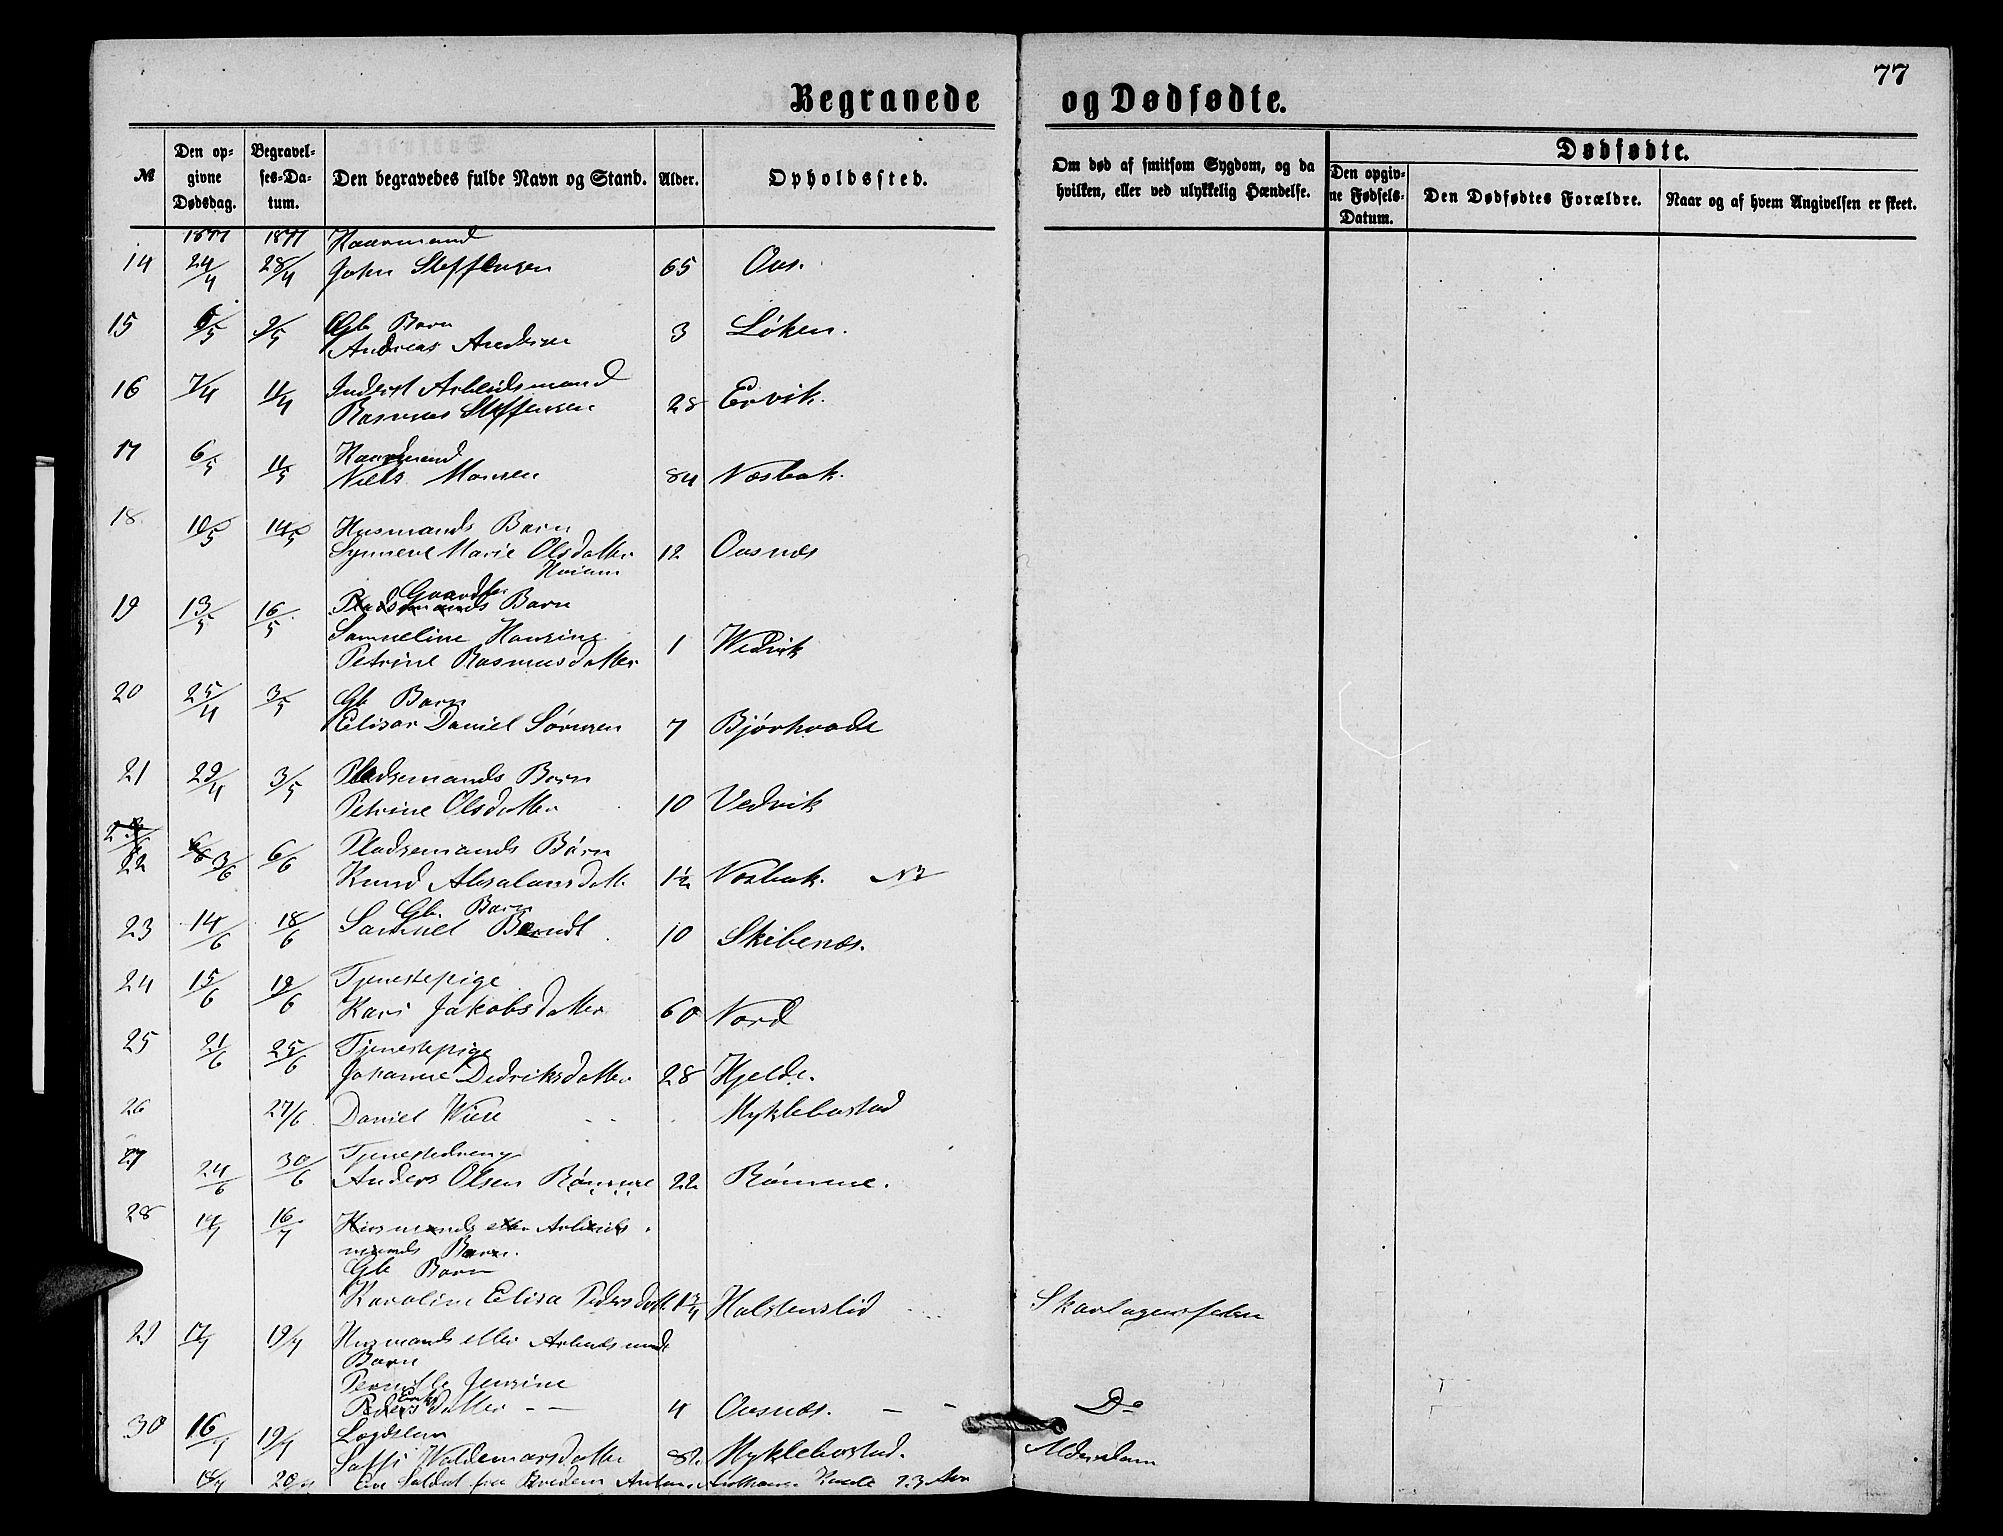 77
Begravede og Dødfødte.
№ Den opgivne Dødsdag. Begravelses-Datum. Den begravedes fulde Navn og Stand. Alder. Opholdssted. Om død af smitsom Sygdom, og da hvilken, eller ved ulykkelig Hændelse. Dødfødte.
Den opgivne Fødsels-Datum. Den Dødfødtes Forældre. Naar og af hvem Angivelsen er skeet.
1877 1877
14 24/4 28/4 John Steffensen 65
15 6/5 9/5 Gb Barn
Andreas Andersen 3 Løken.
16 7/4 11/4 Inderst Arbeidsmand
Rasmus Steffensen 28 Ervik.
17 6/5 11/5
Niels Monsen 84 Næsbak.
18 10/5 14/5 Husmands Barn
Synneve Marie Olsdatter 12 Osnæs
19 13/5 16/5 Barn
Samueline Hansine
Petrine Rasmusdatter 1 Wedvik
20 25/4 3/5 Gb Barn
Elisar Daniel Sørensen 7
21 29/4 3/5 Pladsemands Barn
Petrine Olsdatter 10 Vedvik
22 3/6 6/6 Pladsemands Børn
Knud 1½
Gb. Barn
23 14/6 18/6 Samuel Berndt 10 Skibenæs.
24 15/6 19/6 Tjenestepige
Kari Jakobsdatter 60 Nord
25 21/6 25/6 Tjenestepige
Johanne Dedriksdatter 28 Hjelde.
26 27/6 Daniel Myklebostad
27 24/6 30/6 Tjenestedreng
Anders Olsen Rømme 22 Rømme.
28 16/7 Husmands eller Arbeids
mands Barn.
Gb Barn
Karoline Elisa Pedersdatt. Halstenslid Skarlagensfeber
29 17/7 19/7 Husmands eller Arbeidsmands
Barn
Pernille Jensine
datter - - 4 Osnæs. - - Do
30 16/7 19/7 Lægdslem
Waldemarsdatter Myklebostad. Alderdom
18/7 20/7 En Soldat fra 23 Aar